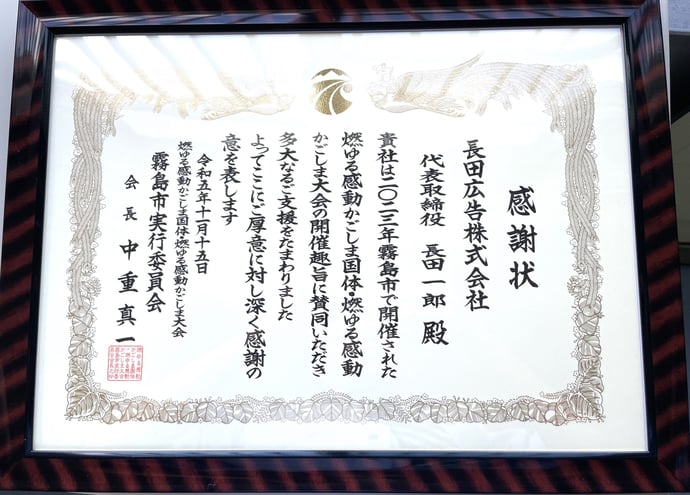 感謝状
長田広告株式会社
代表取締役 長田一郎 殿
貴社は二〇二三年霧島市で開催された
燃ゆる感動かごしま国体・燃ゆる感動
かごしま大会の開催趣旨に賛同いただき
多大なるご支援をたまわりました
よってここにご厚意に対し深く感謝の
意を表します
令和五年十一月十五日
燃ゆる感動かごしま国体・燃ゆる感動かごしま大会
霧島市実行委員会
会長 中重真一